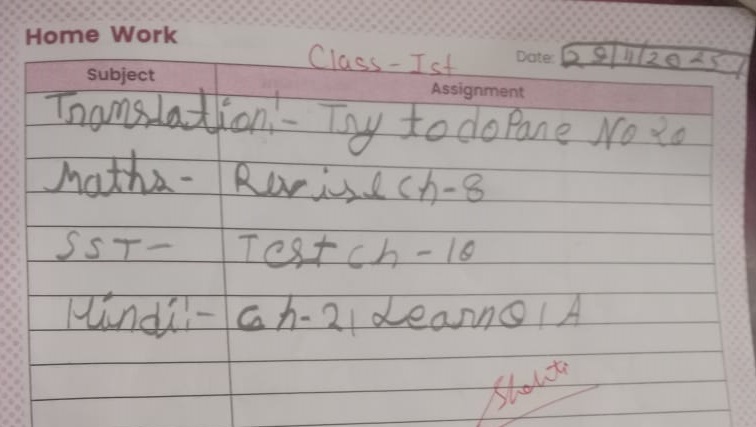 Home Work
Class-Ist
Date: 29/11/2025
Subject Assignment
Translation:- Try to do Pane No 20
Maths- Revise Ch-8
SST- Test ch-10
Hindi:- Ch-21 Learn Q/A